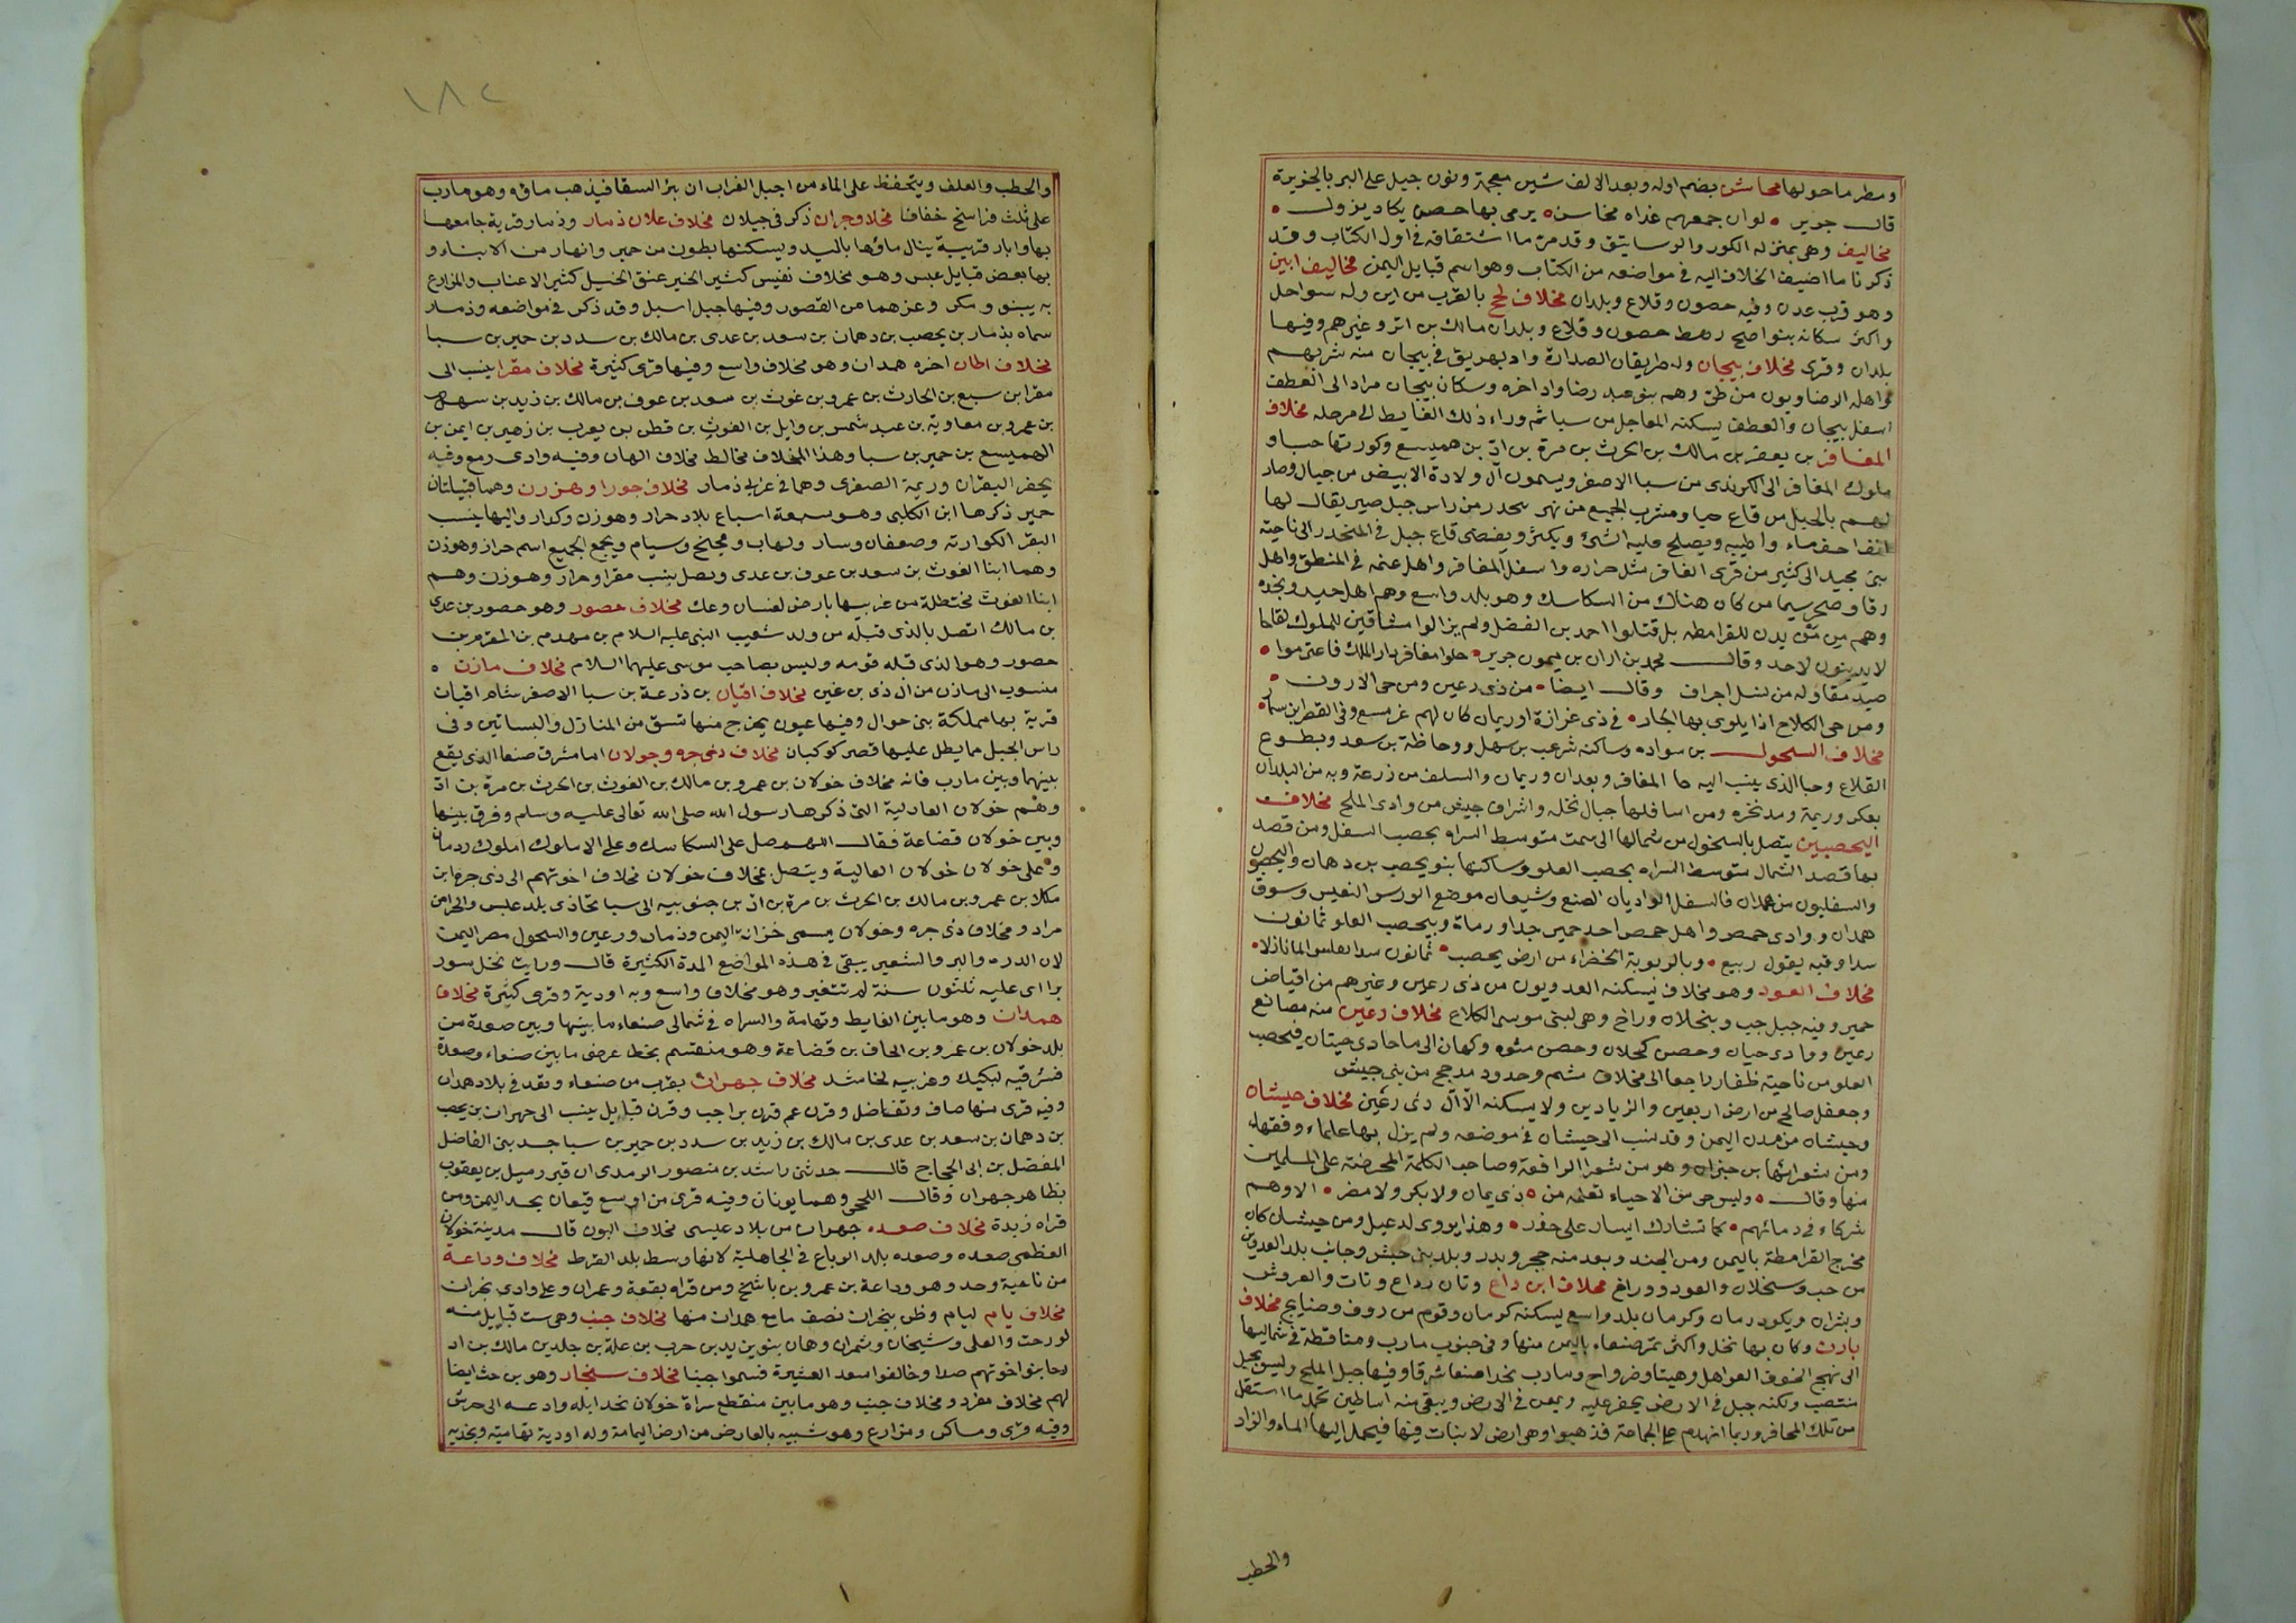 ومطر ما حولها محاشن بضم اوله وبعد الالف شين معجمة ونون جبل على البر بالجزيرة
قال جرير • لو ان جمعهم غداه مخاسن • يرمى بها حصن يكاد يزول •
مخاليف وهى بمنزله الكور والرساتيق وقد مرت ما اشتقاقه فى اول الكتاب وقد
ذكرنا ما اضيف المخلاف اليه فى مواضعه من الكتاب وهو اسم قبايل اليمن مخاليف ابين
وهو قرب عدن وفيه حصون وقلاع وبلدان مخلاف لحج بالقرب من ابين وله سواحل
واكثر سكانه بنو اصبح رهط حصون وقلاع وبلدان مالك بن انس وغيرهم وفيها
بلدان وقرى مخلاف بيحان وله طريقان الصدارة واد يهريق فى بيحان منه شربهم
واهله الرضاويون من طى وهم بنو عبد رضا واد اخره وسكان بيحان مراد الى العطف
اسفل بيحان والعطف يسكنه المعاجل من سبا ثم وراء ذلك الغايط الى مرحله مخلاف
المعافر بن يعفر بن مالك بن الحرث بن مرة بن ادّ بن هميسع وكورتها حبا و
ملوك المعافر الى الكرندى من سبا الاصغر ويسمون آل ولادة الابيض من جبال وصار
لهم بالجبل من قاع حبا ومشرب الجميع من نهر ينحدر من راس جبل صبر يقال لها
انف احف ماء واطيبه ويصلح عليه الشئ ويكثر ويفضى قاع جبل فى المنحدر الى ناحية
بنى مجيد الى كثير من قرى المعافر مثل حراره واسفل المعافر واهل عنمه فى المنطق واهل
رقا وصحر سيما من كان هناك من السكاسك وهو بلد واسع وهم اهل جيد ونجده
وهم من يدن للقرامطه بل قتلوا احمد بن الفضل ولم يزالوا مشاقين للملوك لقاحا
لا يدينون لاحد وقال محمد بن ابان بن ميمون جرير • حلوا معافر دار الملك فاعتزموا •
صيد مقاوله من نسل اجراف وقال ايضا • من ذى رعين ومن حى الارون •
ومن حى الكلاع اذا يلوى بها الجار • فى ذى عزازة او ريمان كان لهم
مخلاف السحول بن سواده وساكنه شرعب بن سهل ووحاظة بن سعد وبطوع
القلاع وحبا الذى ينسب اليه حا المعافر وبعدان وريمان والسلف من زرعة وبه من البلدان
بعكر وريمة ومدنخره ومن اسافلها جبال نخله واشراف جيش من وادى الملح مخلاف
اليحصبيين يتصل بالسحول من شمالها الى سمت متوسط السراه يحصب السفل ومن قصد
بها قصد الشمال متوسط السراه يحصب العلو وساكنها بنو يحصب بن دهمان واليحصبيون
والسفليون من همدان فالسفل الواديان الصنع وشيعان موضع الورس النفيس وسوق
همدان ووادى حمص واهل حمص احد حمير جدا ورماة وبيحصب العلو ثمانون
سدا وفيه يقول ربيع • وبالربوية الخضراء من ارض يحصب • ثمانون سدا
مخلاف العود وهو مخلاف يسكنه العدويون من ذى رعين وغيرهم من افياض
حمير وفيه جبل جب وبنحلان وراخ وهى لبنى موسى الكلاع مخلاف رعين منه مصانع
رعين ووادى حيان وحصن كحلان وحصن مثوه وكهان الى ما حادى حيتان فيحصب
العلو من ناحية ظفار راجعا الى مخلاف ميثم وحدود مدحج من بنى حبيش
وجعفل صالح من ارض اربعين والزيادين ولا يسكنه الا آل ذى رعين مخلاف حيشان
وجيشان من مدن اليمن وقد نسب الى حيشان فى موضعه ولم يزل بها علماء وفقها
ومن شعرائها بن جبران وهو من شعرا الرافعة وصاحب الكلمة المحرضة على المسلمين
منها وقال • وليس حى من الاحياء تعلمه من • ذى يمان ولا بكر ولا مضر • الا وهم
شركاء فى دمائهم • كما تشارك ايسار على جزر • وهذا يروى لدعبل ومن حيشان كان
مخرج القرامطة باليمن ومن الجند وبعد منه حجر وبدر وبلد بنى حبش وجانب بلد العدويين
من حب وسنحلان والعود ووراغ مخلاف ابن داع وتان رداع وثات والعروش
وبشران ويكود رمان وكرمان بلد واسع يسكنه كرمان وقوم من روف وصنايح مخلاف
بارث وكان بها نخل واكثر تمر صنعاء باليمن منها وفى جنوب مارب ومتاقطة فى شماليها
الى نهج الجوف العواهل وهيتا وصرواح ومارب بحدا صنعا شرقا وفيها جبل الملح وليس بجبل
منتصب ولكنه جبل فى الارض يحفر عليه ويمعن فى الارض ويبقى منه اساطين تحمل ما استقل
من تلك المحافر وربما انهدم على الجماعة فذهبوا وهى ارض لا نبات فيها فيحمل اليها الماء والزاد
والحطب
١٨٢
والحطب والعلف ويتحفظ على الماء من اجبل الغراب ان ينزا السقا فيذهب ماؤه وهو مارب
على ثلث فراسخ خفافا مخلاف جران ذكر فى جيلان مخلاف علان ذمار وذمار قرية جامعها
بها وابار قريبة ينال ماؤها باليد ويسكنها بطون من حمير وانهار من الابناء و
بها بعض قبايل عبس وهو مخلاف نفيس كثير الخير عتق الخيل كثير الاعناب والمزارع
به بينون و مكر وغيرهما من القصور وفيها جبل اسبل وقد ذكر فى مواضعه وذمار
سماه بذمار بن يحصب بن دهمان بن سعد بن عدى بن مالك بن سدد بن حمير بن سبا
مخلاف الهان اخوه همدان وهو مخلاف واسع وفيها قرى كثيرة مخلاف مقرا ينسب الى
مقرا بن سبيع بن الحارث بن عمرو بن غوث بن سعد بن عوف بن مالك بن زيد بن سهل
بن عمرو بن معاوية بن عبد شمس بن وايل بن الغوث بن قطن بن يعرب بن زهير بن ايمن بن
الهميسع بن حمير بن سبا وهذا المخلاف مخالط مخلاف الهان وفيه وادى رمع وفيه
يحفر البقران وريمة الصغرى وهما فى غربى ذمار مخلاف جورا وهزرن وهما قبيلتان
حمير ذكرها ابن الكلبى وهو سبعة اسباع بلاد حرار وهوزن وكرار واليها ينسب
البقر الكوارته وصعفان ومسار ولهاب ومجنح وسيام ويجمع الجميع اسم حراز وهوزن
وهما ابنا الغوث بن سعد بن عوف بن عدى ويصل ينسب مقرا وحراز وهوزن وهم
ابنا الغوث مختطلة من غربيها بارض لعسان وعك مخلاف حصور وهو حصور بن عدى
بن مالك اتصل بالذى قبله من ولد شعيب النبى عليه السلام بن مهدم بن المقدم بن
حصور وهو الذى قبله قومه وليس بصاحب موسى عليهما السلام مخلاف مازن •
منسوب الى مازن من ال ذى بن غير مخلاف اقيان بن زرعة بن سبا الاصغر شام اقيان
قرية بها مملكة بنى حوال وفيها عيون يخرج منها تسق من المنازل والبساتين وفى
راس الجبل مما يطل عليها قصر كوكبان مخلاف ذى جره وجولان اما مشرق صنعا الذى يقع
بينهما وبين مارب فانه مخلاف خولان بن عمرو بن مالك بن الغوث بن الحرث بن مرة بن ادّ
وهم خولان العادلية التى ذكرها رسول الله صلى الله تعالى عليه وسلم وفرق بينها
وبين خولان قضاعة فقال اللهم صل على السكاسك وعلى الاملوك املوك ردمان
وعلى خولان خولان العالية ويتصل بمخلاف خولان مخلاف اخوتهم الى ذى جره ابن
مكلا بن عمرو بن مالك بن الحرث بن مرة بن اد بن جنوبيه الى سبا تحاذى بلد عبس والحرامن
مراد ومخلاف ذى جره وخولان يسمى خزانة اليمن وذمار ورعين والسحول مصر اليمن
لان الدره والبر والشعير يبقى فى هذه المواضع المدة الكثيرة قال ورايت نخل سور
برا اى عليه ثلثون سنة لم تتغير وهو مخلاف واسع وبه اودية وقرى كثيرة مخلاف
همدان وهو ما بين الغايط وتهامة والسراه فى شمالى صنعاء ما بينها وبين صعدة من
بلد خولان بن عمرو بن الحاف بن قضاعة وهو منقسم بخط عرضى ما بين صنعاء وصعدة
فشرقيه لبكيل وغربيه لحاشد مخلاف جهران بقرب من صنعاء ونقد فى بلاد همدان
وفيه قرى منها صاف وتفاضل وقرن عم قرن براجب وقرن قبايل ينسب الى جهران بن يحصب
بن دهمان بن سعد بن عدى بن مالك بن زيد بن سدد بن حمير بن سبا جد بنى الفاضل
المفضل بن ابى الحجاج قال حدثنى راشد بن منصور الرمدى ان قبر رميل بن يعقوب
بظاهر جهران وقال اللحجى وهما يونان وفيه قرى من اوسع قيعان نجد اليمن ومن
قراه زبدة مخلاف صعده جهران من بلاد عليسى مخلاف البون قال مدينة خولان
العظمى صعده وصعده بلد الدباغ فى الجاهلية لانها وسط بلد القرظ مخلاف وداعة
من ناحية وحد وهو وداعة بن عمرو بن باشخ ومن قراه بقعة وعمران وعلى وادى نجران
مخلاف يام ليام وظن بنجران نصف ما مع همدان منها مخلاف جنب وهى ست قبايل منه
لورحت والعلى وشيحان وشمران وهان بنو يزيد بن حرب بن علة بن جلد بن مالك بن اد
وحا بنو اخوتهم صدا وخالفوا سعد العشيرة فسموا جنبا مخلاف سنحار وهو بن حث ايضا
لهم مخلاف مفرد ومخلاف جنب وهو ما بين منقطع سراة خولان بحدا بله وادعه الى جرش
وفيه قرى ومساكن ومزارع وهو شبيه بالعارض من ارض اليمامة وله اودية تهامية ونجديه